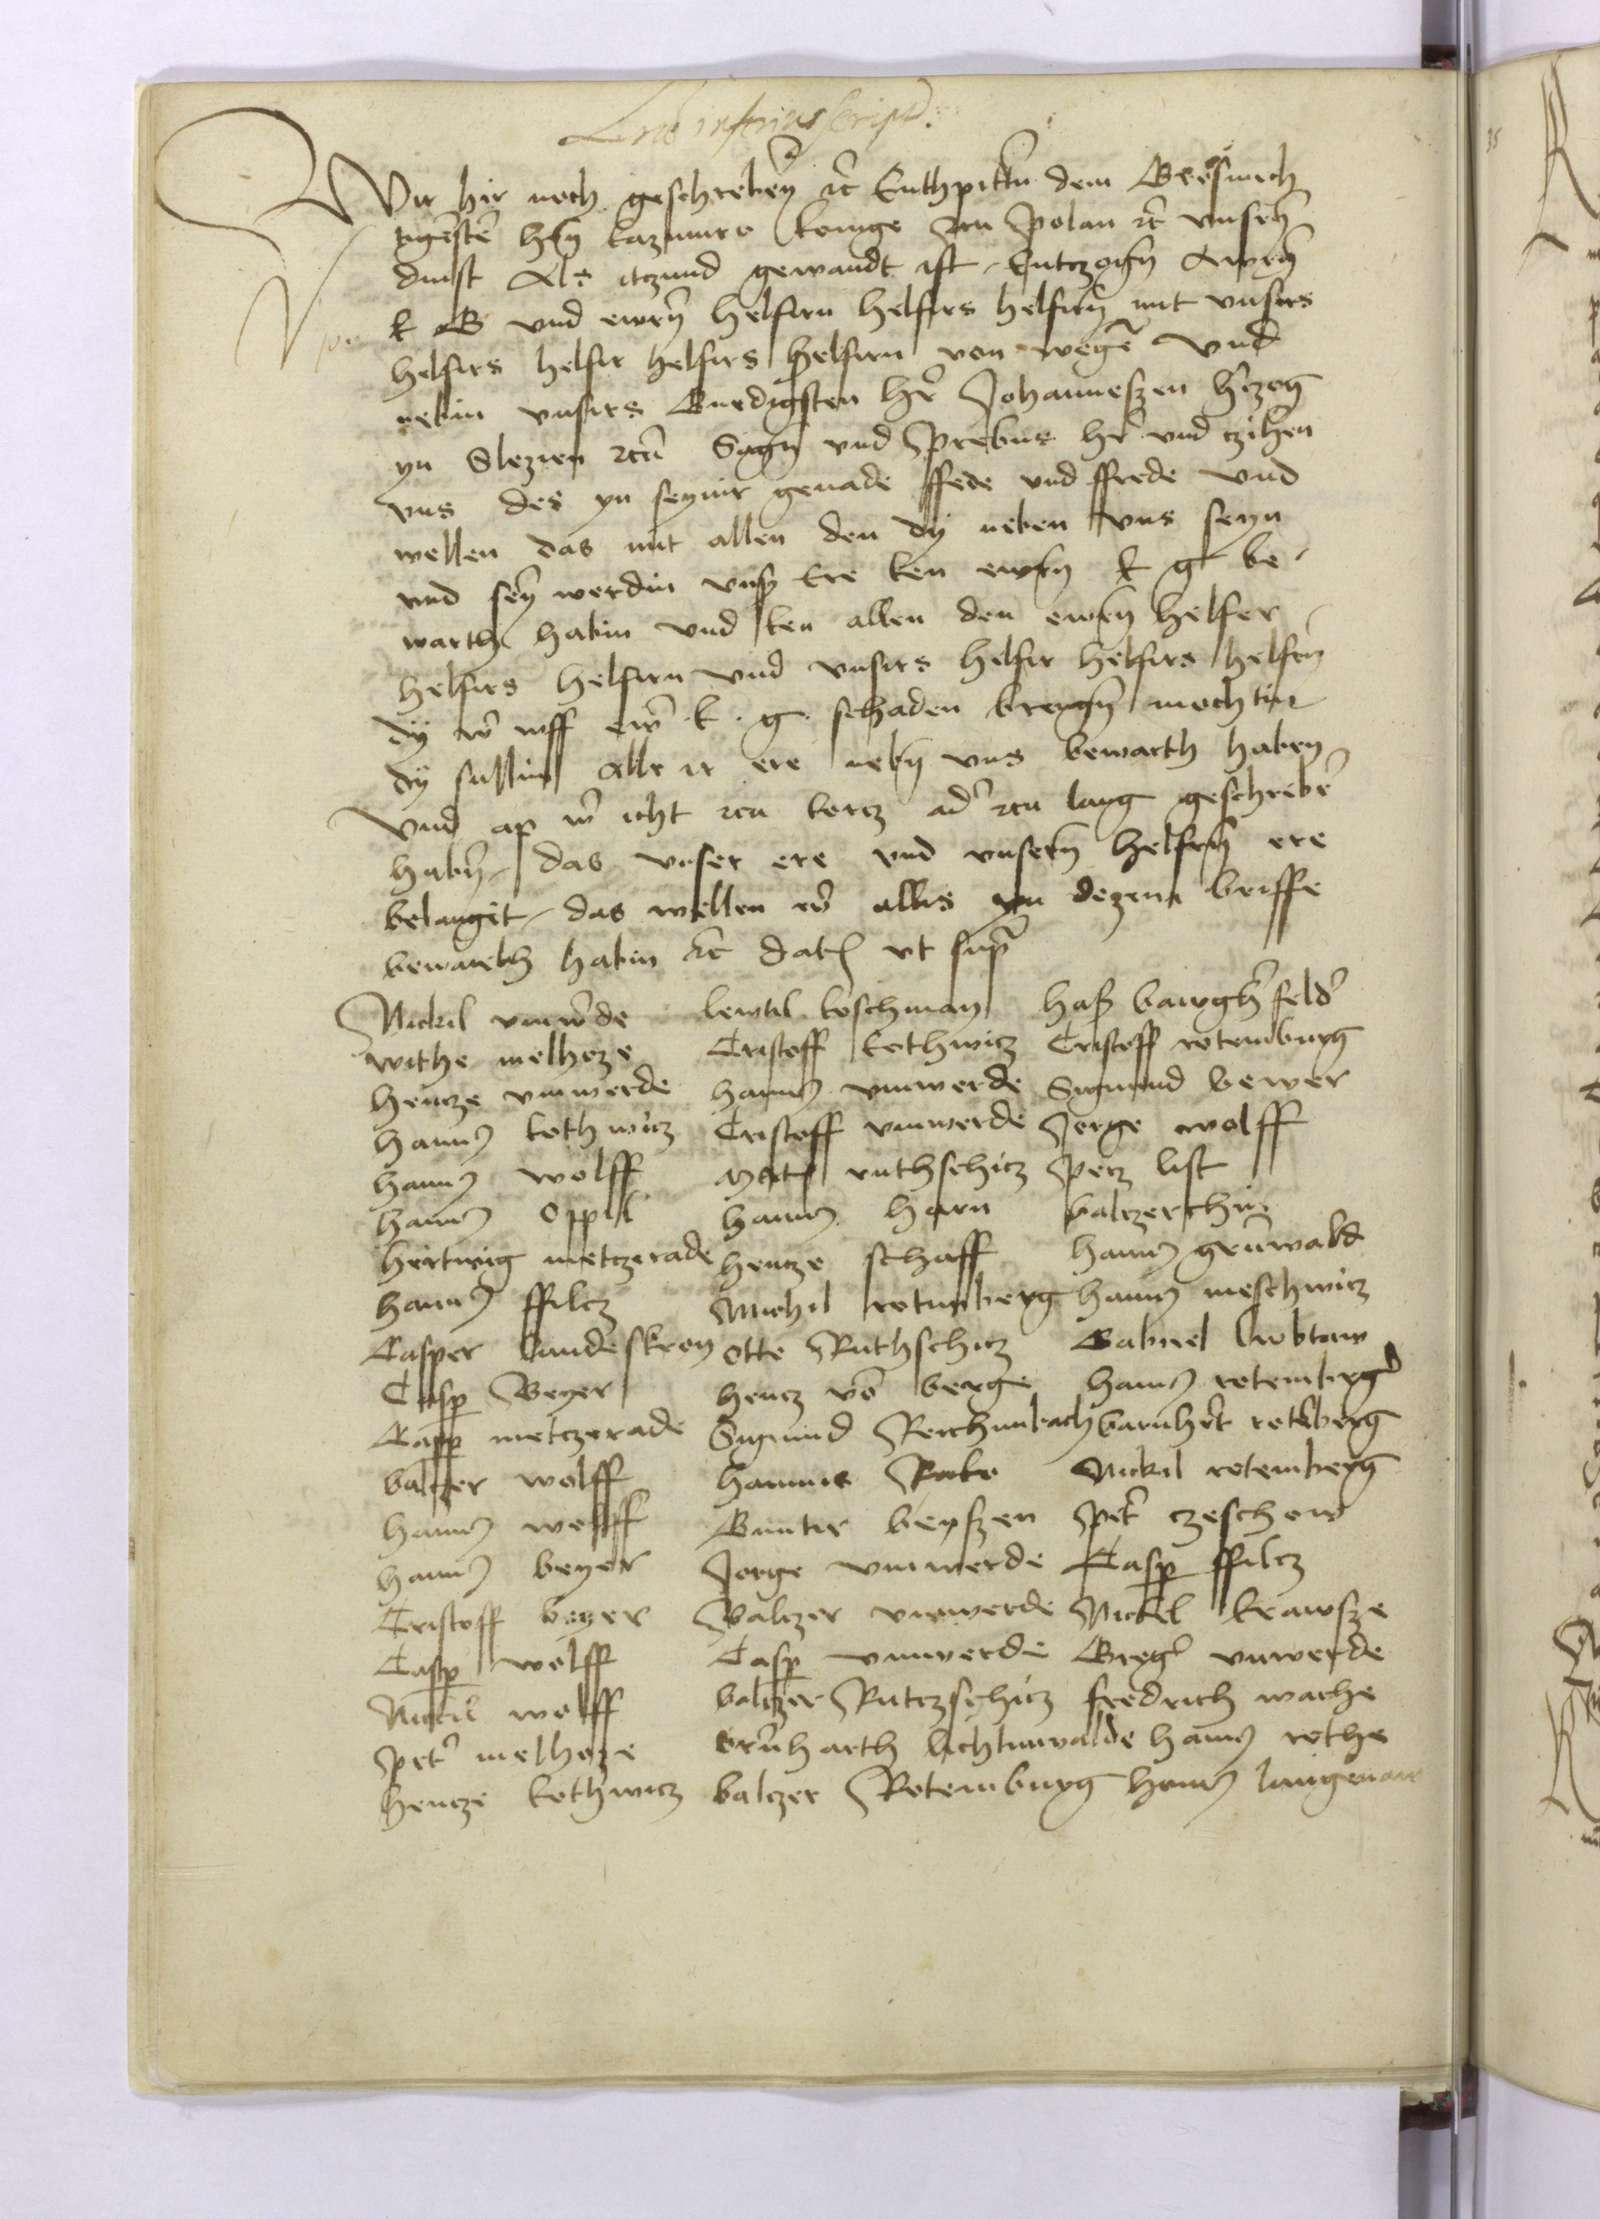 Wir hir noch geschreben etc Enthpiten dem Grosmech
tigesten hern kazimiro konige zcu Polan etc unsern
dinst Als itzund gewandt ist Entczogen ewern
k G und ewern helfirn helfirs helfirn mit unsirs
helfirs helfir helfirs helfirn von wegen und
nebin unsirs Gnedigsten hern Johanneszen herzog
yn Slezien zcum Sagen und Prebus her und czihen
uns des yn seynir genade ffede und ffrede und
wellen das mit allen den dy neben uns seyn
und seyn werdin unser Ere ken ewern k g be
warth habin und ken allen den ewern helfer
helfirs helfirn und unsirs helfir helfirs helfern
dy wir uff ewer k . g . schaden brengen mochtin
dy sullin alle ir ere nebin uns bewarth haben
Und ap wir icht zcu korcz ader zcu lang geschreben
haben das unser ere und unsern helfern ere
belangit das wellen wir allis yn dezem briffe
bewarth habin etc dat ut supra
Nickil unwerde lewtil koschman haß
withe melhoze Cristoff kothwicz Cristoff rotemburg
hencze unwerde hannus unwerde Sigmund bewer
hannus kothwicz Cristoff unwerde Jorge wolff
hannus wolff ruthschicz Petz list
hannus Oppil hannus horn
hertwig metczerade hencze schaff hannus grunwald
hannus ffilcz Michil rotinberg hannus meschwicz
Casper landeskron Otte Ruthschicz Gabriel lubtaw
Casper Beyer hencz von berge hannus rotemberg
Casper metczerade Sigmund Reichinbach barnhart rotberg
balczer wolff hannus Rake Nickil rotemberg
hannus wolff Guntir beyszen Peter czeschow
hannus beyer Jorge unwerde Casper ffilcz
Cristoff beyer Balczer unwerde Nickel krawsze
Casper wolff Casper unwerde Greger unwerde
Nickil wolff balczer Rutczschicz fredrich wache
Peter melhoze bernharth lichtinwalde hannus rothe
hencze kothwicz balczer Rotemburg hannus langenaw